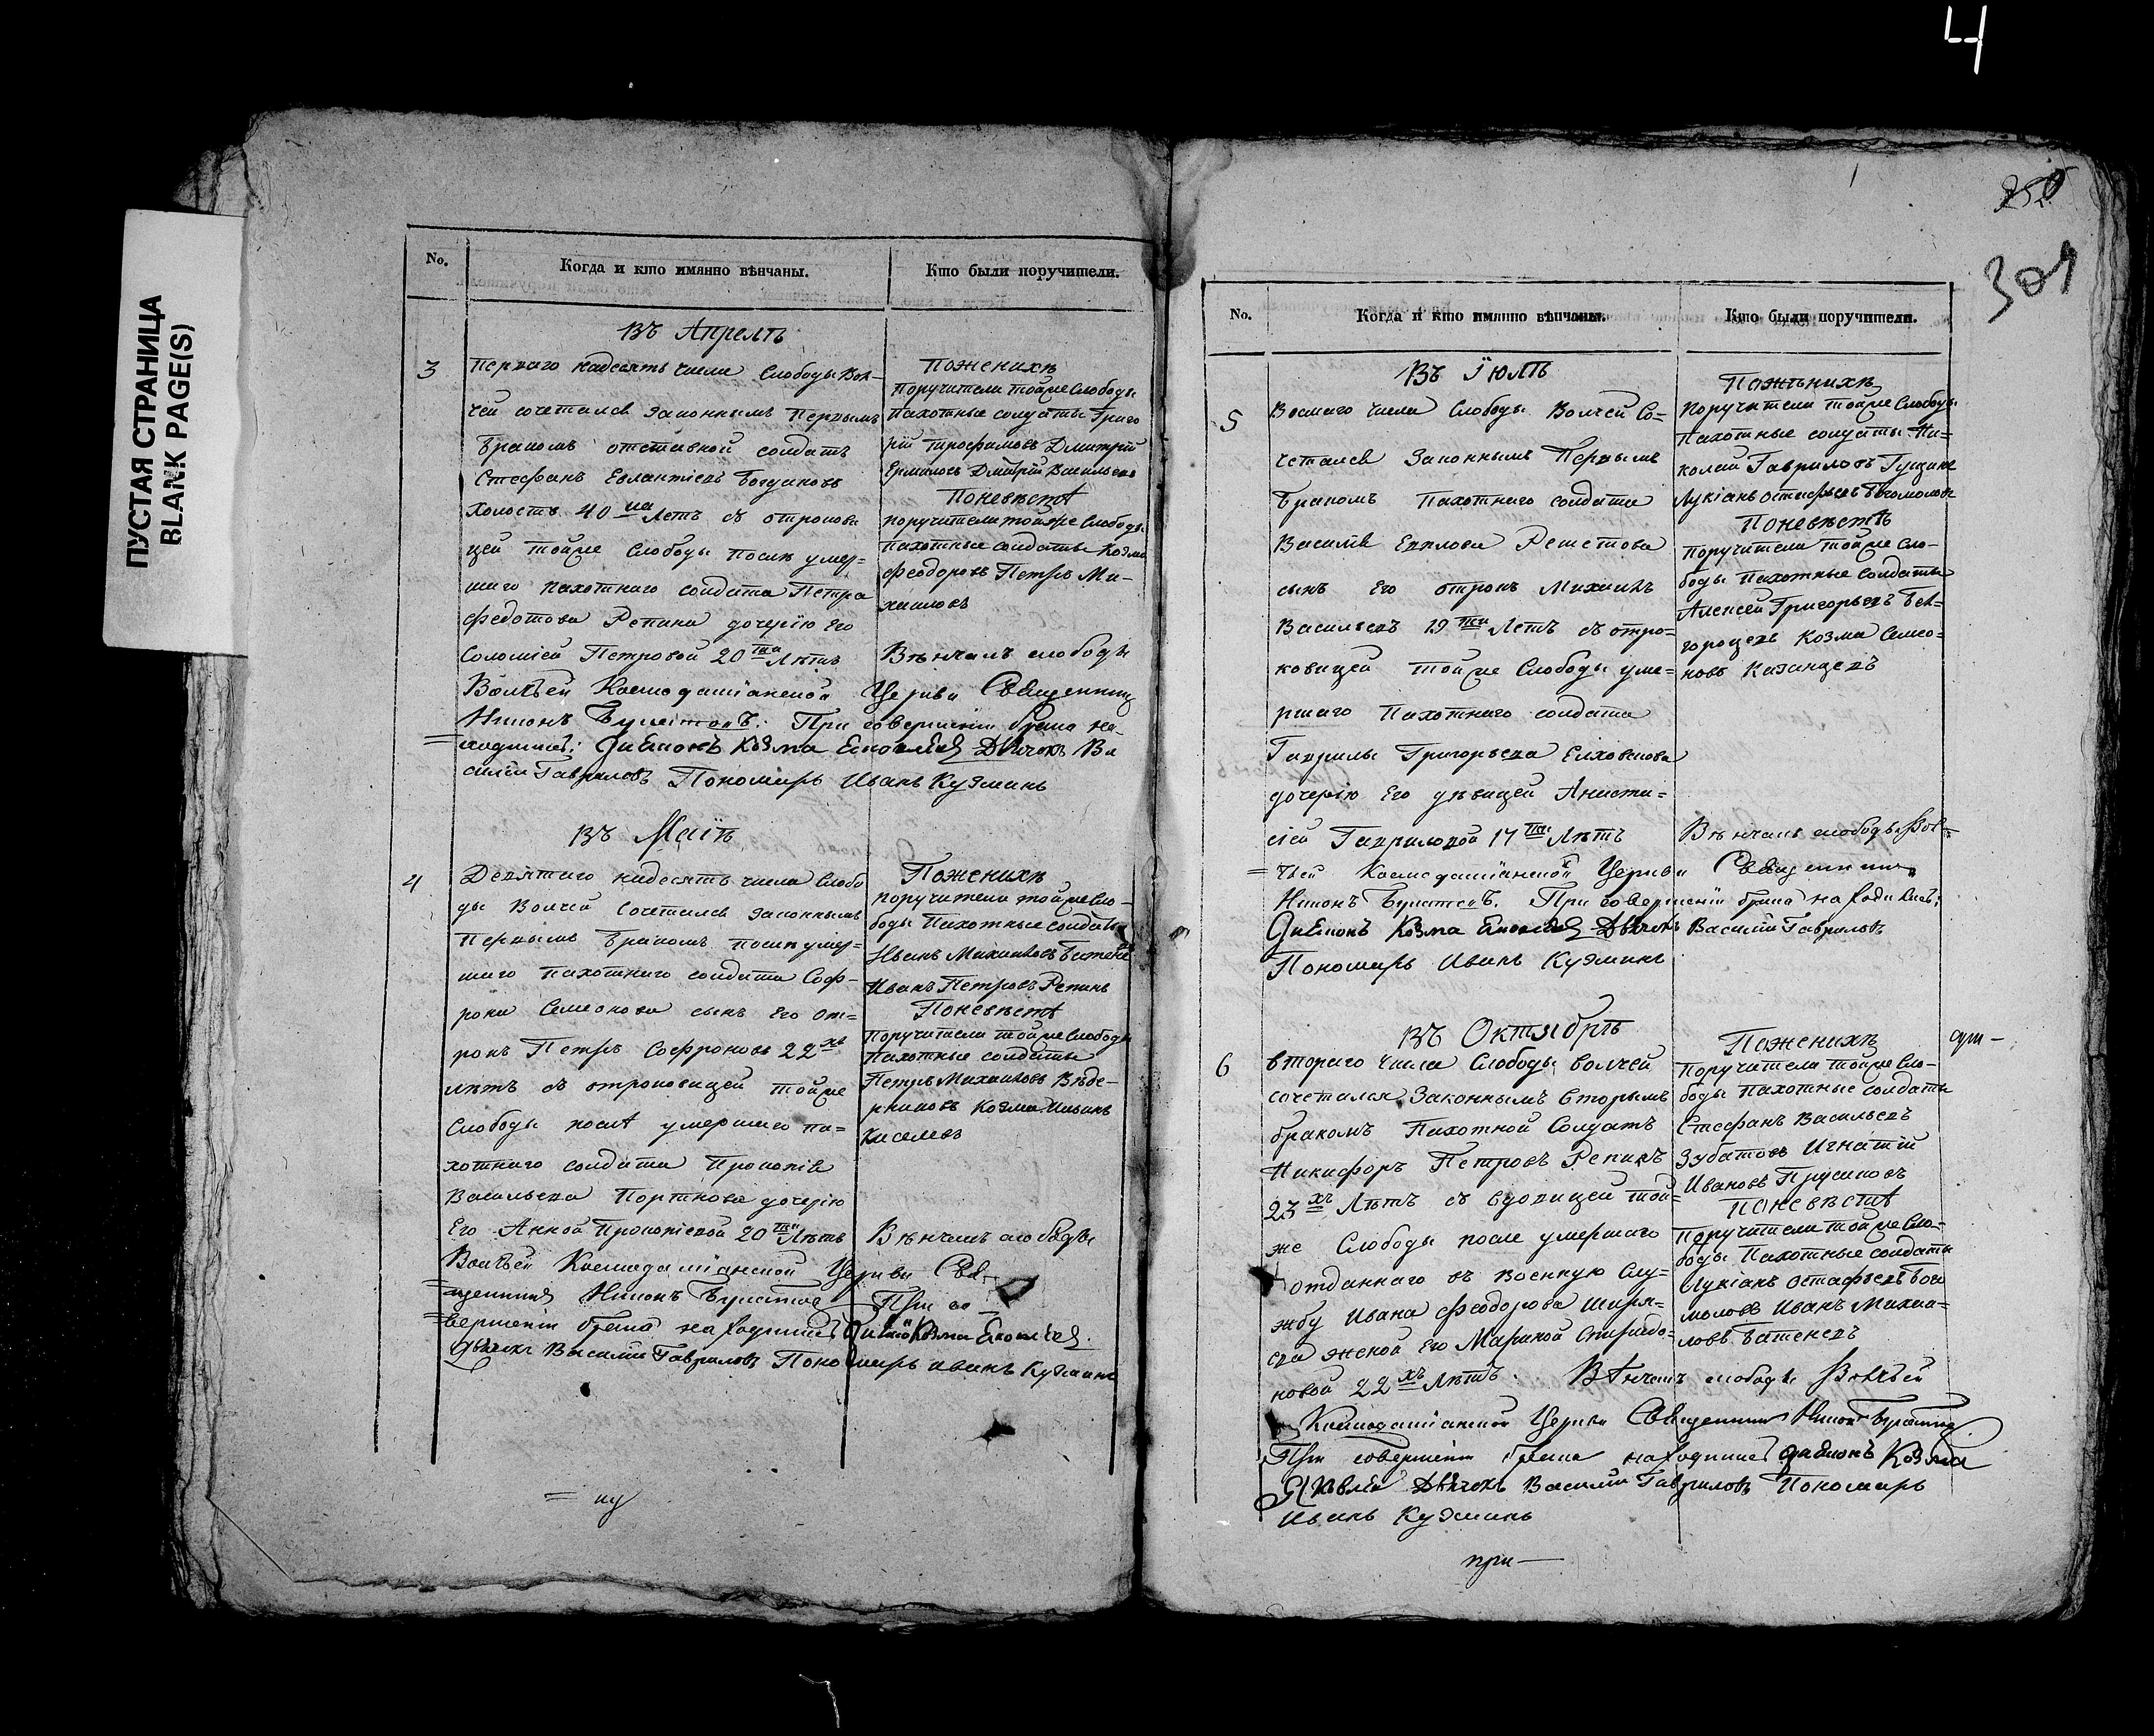 4
ПУСТАЯ СТРАНИЦА
BLANK PAGE(S)
No.
Когда и кто имянно вѣнчаны.
Кто были поручители.
Въ Апрелѣ
3
Перваго надесять числа Слободы Вол-
чей сочетался законнымъ Первымъ
бракомъ отставной солдатъ
Стефанъ Богдановъ
холостъ 40 на Летъ съ отрокови
цей тойже Слободы после умер-
шаго пахотнаго солдата Петра
Федотова Репина дочерію Его
Соломіей Петровой 20 ти Лѣтъ
Поженихѣ
Поручители тойже Слободы
Пахотные солдаты Григо
рій Трофимовъ Дмитрій
Ермиловъ Дмитрій Васильевъ
Поневѣстѣ
поручители тойже Слободы
пахотные солдаты Козма
Феодоровъ Петръ Ми-
хаиловъ
Вѣнчалъ слободы
Волчьей Космодаміанской Церкви Священникъ
Никонъ При совершеніи брака на-
ходились: Діяконъ Козма Яковлевъ Дьячокъ Ва
силій Гавриловъ Пономарь Иванъ Кузминъ
Въ Маіѣ
4
Девятаго надесять числа Слобо
ды Волчей Сочетался законнымъ
Первымъ бракомъ после умер-
шаго пахотнаго солдата Соф-
рона Семенова сынъ Его от-
рокъ Петръ Софроновъ 22 хъ
лѣтъ съ отроковицей тойже
Слободы послѣ умершаго па-
хотнаго солдата Прокопія
Васильева Портнова дочерію
Его Анной Прокопіевой 20 ти Лѣтъ
Поженихѣ
поручители тойже Сло-
боды Пахотные солдаты
Иванъ Михаиловъ
Иванъ Петровъ Репинъ
Поневѣстѣ
Поручители тойже Слободы
Пахотные солдаты
Петръ Михаиловъ
Козма
Киселевъ
Вѣнчалъ слободы
Волчьей Космодаміанской Церкви Свя-
щенникъ Никонъ При со-
вершеніи брака находились Діяконъ Козма Яковлевъ
Дьячокъ Василій Гавриловъ Пономарь Иванъ Кузминъ
301
No.
Когда и кто имянно вѣнчаны.
Кто были поручители.
Въ Іюлѣ
5
Восмаго числа Слободы Волчей Со-
четался Законнымъ Первымъ
бракомъ Пахотнаго солдата
Василія Решетова
сынъ Его отрокъ Михаилъ
Васильевъ 19 ти Летъ съ отро-
ковицей тойже Слободы уме-
ршаго Пахотнаго солдата
Гаврилы Григорьева
дочерію Его дѣвицей Анаста-
сіей Гавриловой 17 ти Лѣтъ
Поженихѣ
поручители тойже Слободы
Пахотные солдаты Ни-
колай Гавриловъ Гущинъ
Лукіанъ Остафьевъ Богомоловъ
Поневѣстѣ
поручители тойже сло-
боды Пахотные Солдаты
Алексей Григорьевъ Бел-
городцевъ Козма Семео-
новъ Казанцевъ
Вѣнчалъ слободы Вол-
чьей Космодаміанской Церкви Священникъ
Никонъ При совершеніи брака находились:
Діяконъ Козма Яковлевъ Дьячокъ Василій Гавриловъ
Пономарь Иванъ Кузминъ
Въ Октябрѣ
6
втораго числа Слободы волчей
сочетался Законнымъ вторымъ
бракомъ Пахотной Солдатъ
Никифоръ Петровъ Репинъ
23 хъ Лѣтъ съ вдовицей той-
же Слободы после умершаго
отданнаго въ военную Слу-
жбу Ивана Феодорова Ширя-
ева женой Его Мариной Спиридо-
новой 22 хъ Лѣтъ.
Поженихѣ
Поручители тойже Сло-
боды Пахотные солдаты
Стефанъ Васильевъ
Зубатовъ Игнатій
Ивановъ Прусаковъ
Поневѣстѣ
Поручители тойже Сло-
боды Пахотные солдаты
Лукіанъ Остафьевъ Бого
моловъ Иванъ Михаи-
ловъ Батеневъ
Вѣнчалъ слободы Волчьей
Космодаміанской Церкви Священникъ Никонъ
При совершеніи брака находились діяконъ Козма
Яковлевъ Дьячокъ Василій Гавриловъ Пономарь
Иванъ Кузминъ
при